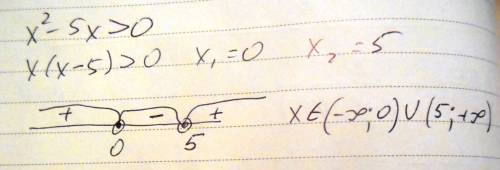 x²-5x>0
x(x-5)>0 x₁=0 x₂=5
+ - +
0 5
x∈(-∞;0)∪(5;+∞)